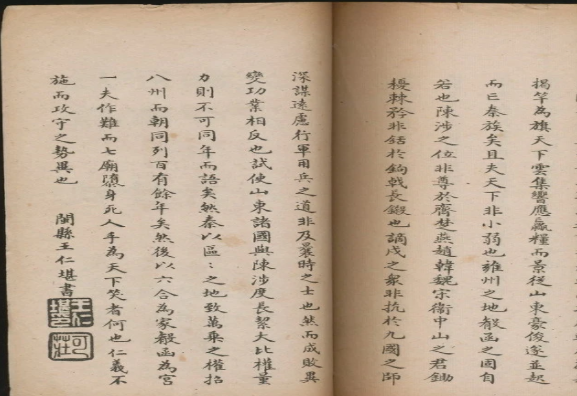 揭竿為旗天下雲集響應贏糧而景從山東豪俊遂並起
而亡秦族矣且夫天下非小弱也雍州之地殽函之固自
若也陳涉之位非尊於齊楚燕趙韓魏宋衞中山之君鋤
櫌棘矜非銛於鉤戟長鎩也謫戍之衆非抗於九國之師
深謀遠慮行軍用兵之道非及曩時之士也然而成敗異
變功業相反也試使山東諸國與陳涉度長絜大比權量
力則不可同年而語矣然秦以區:之地致萬乘之權招
八州而朝同列百有餘年矣然後以六合為家殽函為宮
一夫作難而七廟隳身死人手為天下笑者何也仁義不
施而攻守之勢異也 閩縣王仁堪書
王仁堪
可莊